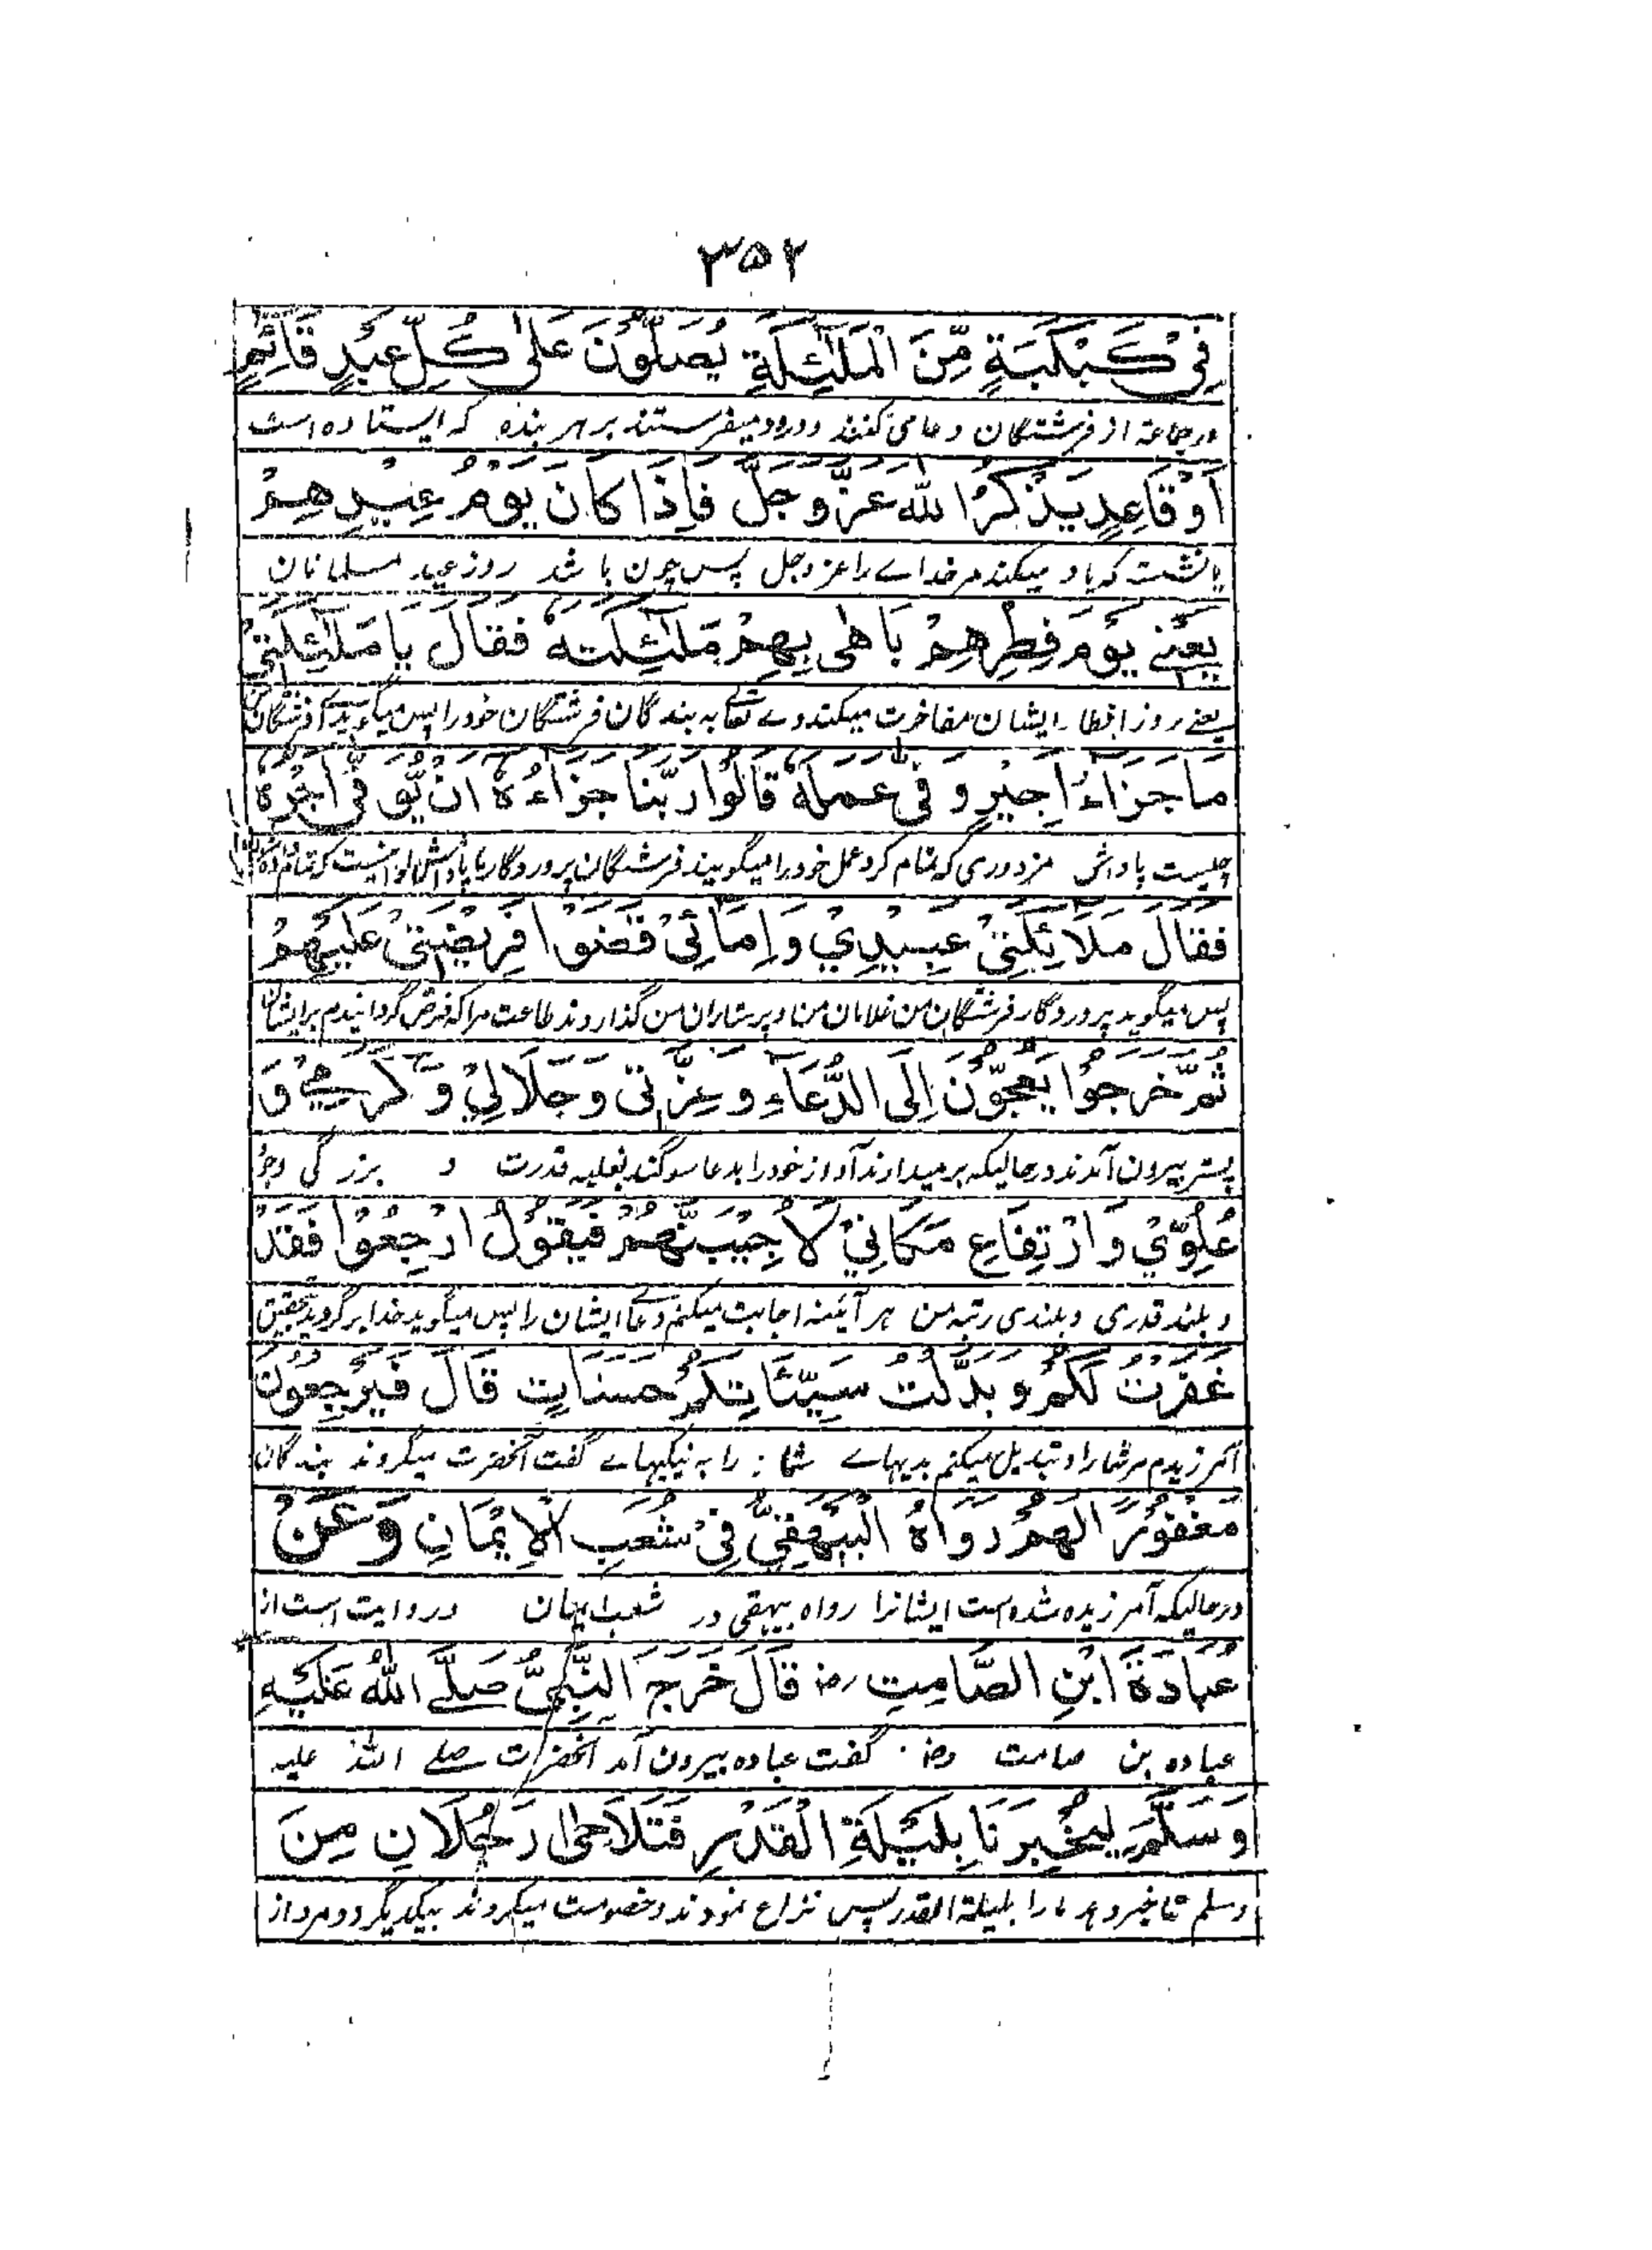 ۳۵۲
فِيْ كَبْكَبَةٍ مِّنَ الْمَلٰٓئِكَةِ يُصَلُّوْنَ عَلٰى كُلِّ عَبْدٍ قَائِمٍ
در جماعة از فرشتگان دعا می کنند و درود میفرستند بر هر بنده که ایستاده است
اَوْ قَاعِدٍ يَذْكُرُ اللّٰهَ عَزَّ وَجَلَّ فَاِذَا كَانَ يَوْمُ عِيْدِهِمْ
یا نشست که یاد میکند مر خداے را عز و جل پس چون باشد روز عید مسلمانان
يَعْنِيْ يَوْمَ فِطْرِهِمْ بَاهٰى بِهِمْ مَلٰٓئِكَتَهٗ فَقَالَ يَا مَلٰٓئِكَتِيْ
یعنے روز افطار ایشان مفاخرت میکند وے تعالے به بندگان فرشتگان خود را پس میگوید اے فرشتگان
مَا جَزَاءُ اَجِيْرٍ وَفّٰى عَمَلَهٗ قَالُوْا رَبَّنَا جَزَاءُهٗ اَنْ يُّوَفّٰى اَجْرُهٗ
چیست پاداش مزدوری که تمام کرد عمل خود را میگویند فرشتگان پروردگار ما پاداش او اینست که تمام داده
فَقَالَ مَلَائِكَتِيْ عَبِيْدِيْ وَاِمَائِيْ قَضَوْا فَرِيْضَتِيْ عَلَيْهِمْ
پس میگوید پروردگار فرشتگان من غلامان من و پرستاران من گذاردند طاعت مرا که فرض گردانیدم بر ایشان
ثُمَّ خَرَجُوْا يَعُجُّوْنَ اِلَى الدُّعَآءِ وَعِزَّتِيْ وَجَلَالِيْ وَكَرَمِيْ وَ
پستر بیرون آمدند در حالیکه بر میدارند آواز خود را بدعا سوگند بغلبه قدرت و بزرگی
عُلُوِّيْ وَارْتِفَاعِ مَكَانِيْ لَاُجِيْبَنَّهُمْ فَيَقُوْلُ ارْجِعُوْا فَقَدْ
و بلند قدری و بلندی رتبه من هر آئینه اجابت میکنم دعاے ایشان را پس میگوید خدا بر گردید تحقیق
غَفَرْتُ لَكُمْ وَبَدَّلْتُ سَيِّئَاتِكُمْ حَسَنَاتٍ قَالَ فَيَرْجِعُوْنَ
آمرزیدم مر شما را و تبدیل میکنم بدیهاے شما را به نیکیهاے گفت آنحضرت میگردند بندگان
مَغْفُوْرًا لَهُمْ رَوَاهُ الْبَيْهَقِيُّ فِيْ شُعَبِ الْاِيْمَانِ وَعَنْ
در حالیکه آمرزیده شده است ایشانرا رواه بیهقی در شعب ایمان و روایت است از
عُبَادَةَ ابْنِ الصَّامِتِ رض قَالَ خَرَجَ النَّبِيُّ صَلَّے اللّٰهُ عَلَيْهِ
عباده بن صامت رض گفت عباده بیرون آمد آنحضرت صلے الله علیه
وَسَلَّمَ لِيُخْبِرَنَا بِلَيْلَةِ الْقَدْرِ فَتَلَاحٰى رَجُلَانِ مِنَ
وسلم تا خبر دهد ما را بلیلة القدر پس نزاع نمودند و خصومت میکردند بیکدیگر دو مرد از